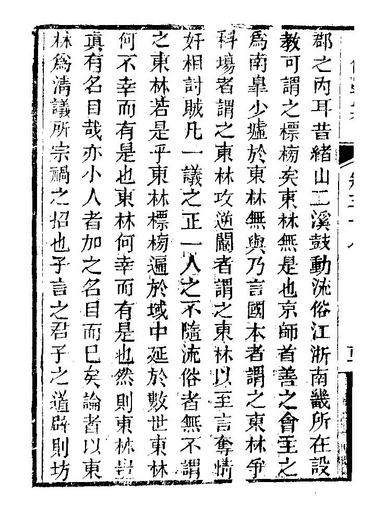 郡之内耳昔緒山二溪鼓動流俗江浙南畿所在設
教可謂之標榜矣東林無是也京師首善之會主之
爲南臯少墟於東林無與乃言國本者謂之東林爭
科塲者謂之東林攻逆閹者謂之東林以至言奪情
奸相討賊凡一議之正一人之不隨流俗者無不謂
之東林若是乎東林標榜遍於域中延於數世東林
何不幸而有是也東林何幸而有是也然則東林豈
眞有名目哉亦小人者加之名目而已矣論者以東
林爲清議所宗禍之招也子言之君子之道辟則坊